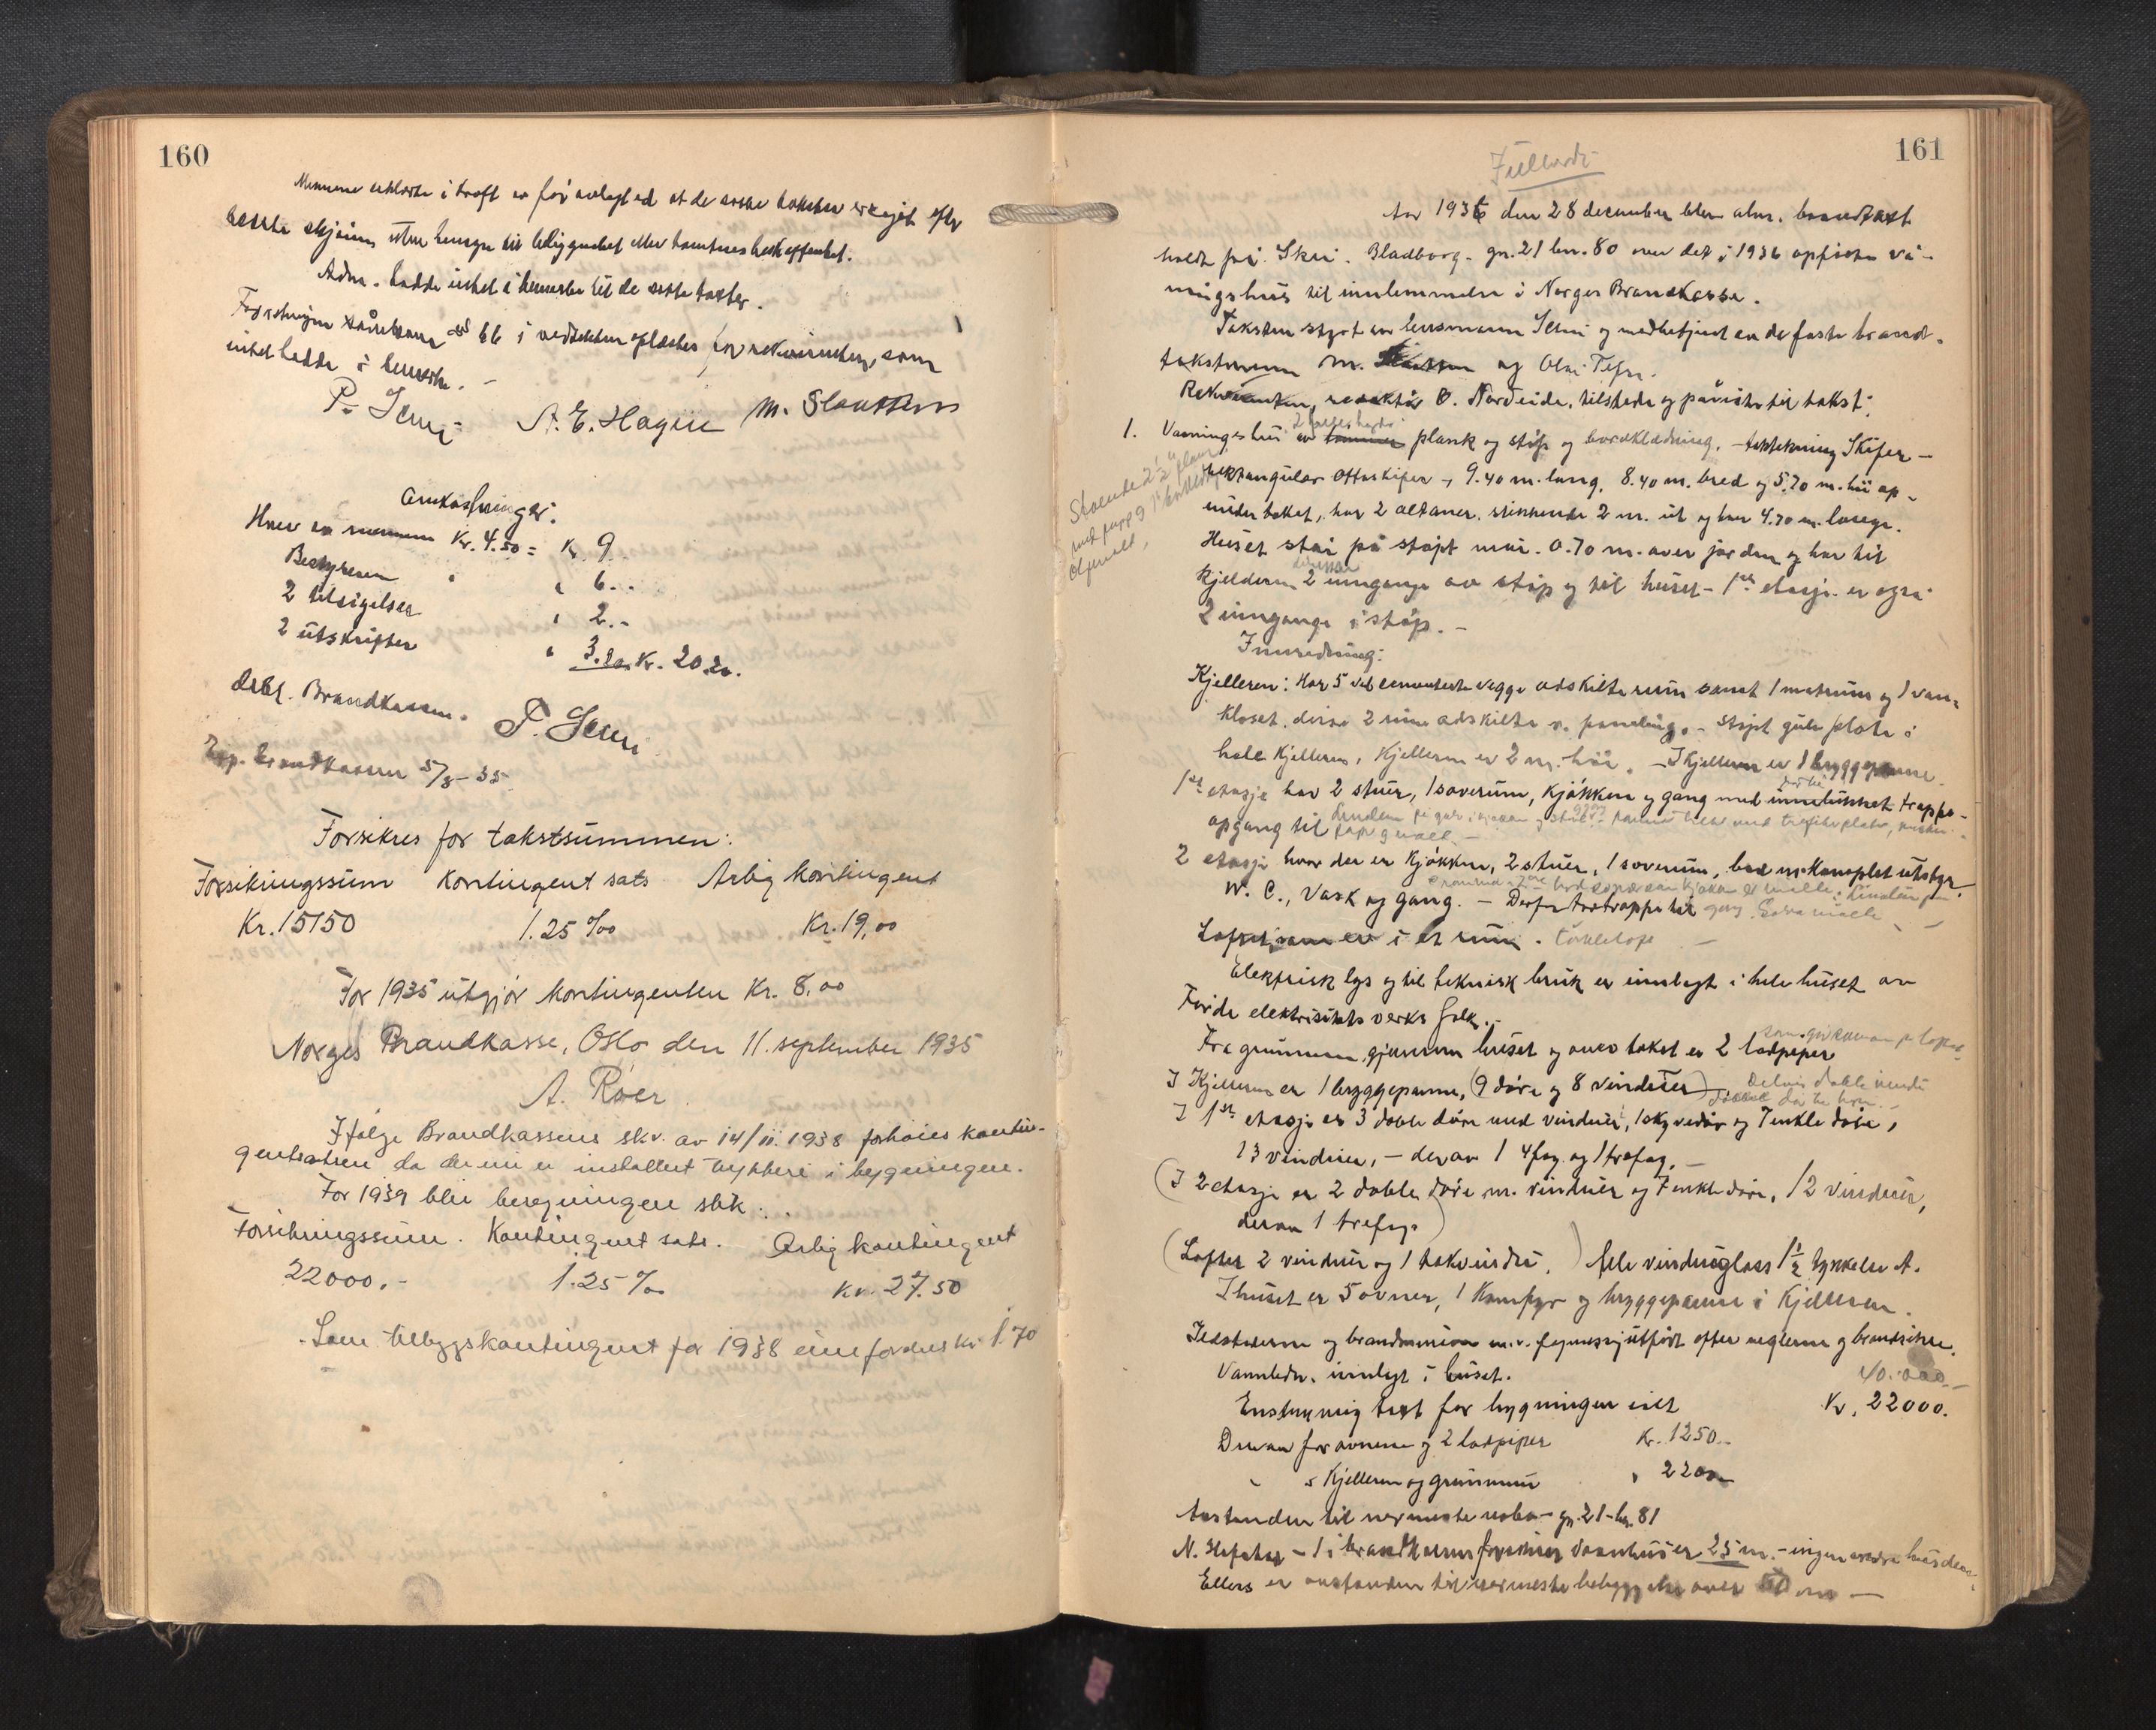 160
Mennene erklærte i kraft av før avlagt ed at de satte takster er avgit efter
beste skjønn uten hensyn til beliggenhet eller tomtens beskaffenhet.
Adm. hadde intet å bemerke til de satte takster.
66 i vedtektene oplæstes for rekvirenten, som
intet hadde å bemerke. -
P. A. E. Hagen M. Slaatten
Omkostninger:
Hver av mennene Kr. 4.50 = Kr. 9.
Bestyreren " " 6. -
2 tilsigelser " 2. -
2 utskrifter " 3.20 Kr. 20.20.
Debt. Brandkassen.
P.
Exp. Brandkassen 5/8 - 35
Forsikres for takstsummen:
Forsikringssum Kontingent sats Årlig kontingent
Kr. 15150 1.25 ‰ Kr. 19,00
For 1935 utgjør kontingenten Kr. 8,00
Norges Brandkasse, Oslo den 11. september 1935
A. Røer
Ifølge Brandkassens skr. av 14/11. 1938 forhøies kontin-
gentsatsen da der nu er installert trykkeri i bygningen.
For 1939 blir beregningen slik:
Forsikringssum. Kontingent sats. Årlig kontingent
22000. - 1.25 ‰ Kr. 27.50
Som tilleggskontingent for 1938 innfordres Kr. 1.70
161
År 1936 den 28 december blev alm. brandtakst
holdt på Skei. Bladborg - gn. 21 bn. 80 over det i 1936 opførte vå-
ningshus til innlemmelse i Norges Brandkasse.
Taksten styrt av lensmann og medbetjent av de faste brand-
takstmenn M. Slaatten og Olai
Rekvirenten, redaktør O. Nordeide, tilstede og påviste til takst:
1. Vaaningshus av plank og støp og bordklædning. - taktekning Skifer -
rektangulær 9.40 m. lang, 8.40 m. bred og 5.70 m. høi op
under taket, har 2 altaner, stikkende 2 m. ut og hver 4.70 m. lange.
Stående 2 1/2" plank
med papp og
Huset står på støpt mur. 0.70 m. over jorden og har til
kjelderen 2 innganger av støp og til huset - 1ste etasje er også
2 innganger i støp. -
Innredning:
Kjelleren: Har 5 ved cementerte vegge adskilte rum samt 1 matrum og 1 van-
kloset, disse 2 rum adskilte v. paneling. - Støpt gulv plate i
hele kjelleren, Kjelleren er 2 m. høi. - I kjelleren er 1 bryggepanne
1ste etasje har 2 stuer, 1 soverum, kjøkken og gang med innelukket trappe-
opgang til
2 etasje hvor der er kjøkken, 2 stuer, 1 soverum, bad m. komplet utstyr,
W. C., Vask og gang. - Derfra trappe til
Loftet som er i et rum. tørkeloft -
Elektrisk lys og til teknisk bruk er innlagt i hele huset av
Førde elektrisitetsverks folk. -
Fra grunnmuren gjennem huset og over taket er 2 lødpiper
I Kjelleren er 1 bryggepanne, (9 døre og 8 vinduer)
I 1ste etasje er 3 doble døre med vinduer, 1 skyvedør og 7 enkle døre,
13 vinduer, - derav 1 4fag. og 1 trefag. -
(I 2 etasje er 2 doble døre m. vinduer og 7 enkle døre, 12 vinduer,
derav 1 trefag.)
(Loftet 2 vinduer og 1 takvindu.) Alle vindusglass 1 1/2 tykkelse A.
I huset er 5 ovner, 1 Komfyr og bryggepanne i Kjelleren.
Ildstederne og brandmuren m.v. utført efter reglerne og brandsikre.
Vannledn. innlagt i huset. 40.000 -
Enstemmig takst for bygningen Kr. 22000.
Derav for ovnene og 2 lødpiper Kr. 1250. -
" " Kjelleren og grunnmur " 2200 -
Avstanden til nærmeste nabo - gn. 21 - bn. 81
N. - 1 i brandkassen forsikret vaanhus er 25 m. - ingen andre hus
Ellers er avstanden til nærmeste bebyggelse over m -